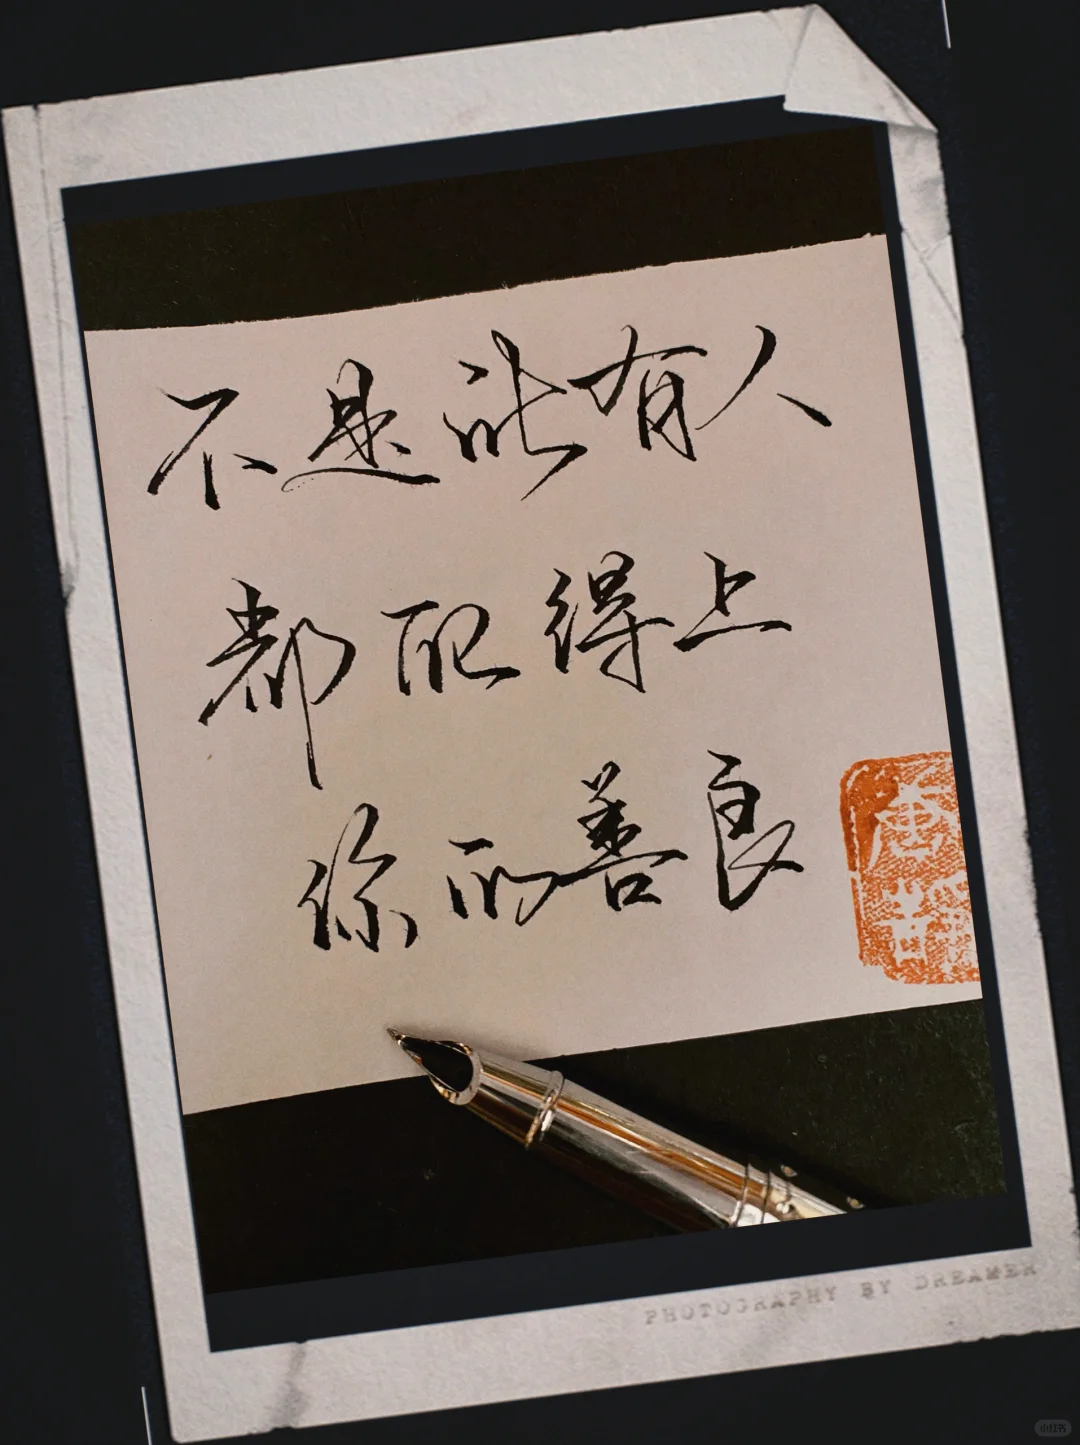 不是所有人
都配得上
你的善良
PHOTOGRAPHY BY DREAMER
小红书